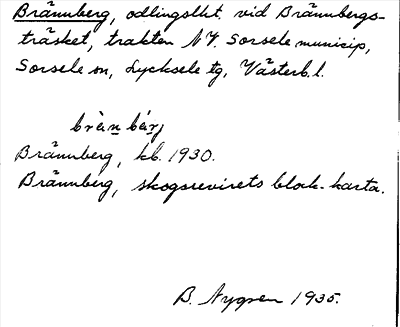 Brännberg, odlingslht. vid Brännbergs-
träsket, trakten NV. Sorsele municip,
Sorsele sn, Lycksele tg, Västerb. l.
brä̀n bärj
Brännberg, kb. 1930.
Brännberg, skogsrevirets block-karta.
B. Nygren 1935.